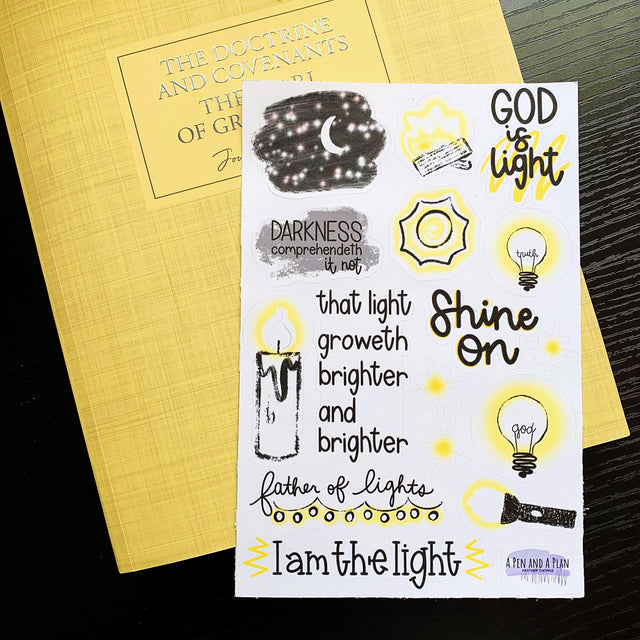 THE DOCTRINE
AND COVENANTS
THE
OF
GOD
is
light
DARKNESS
comprehendeth
it not
truth
that light
groweth
brighter
and
brighter
Shine
on
god
father of lights
I am the light
A PEN AND A PLAN
HEATHER THOMAS